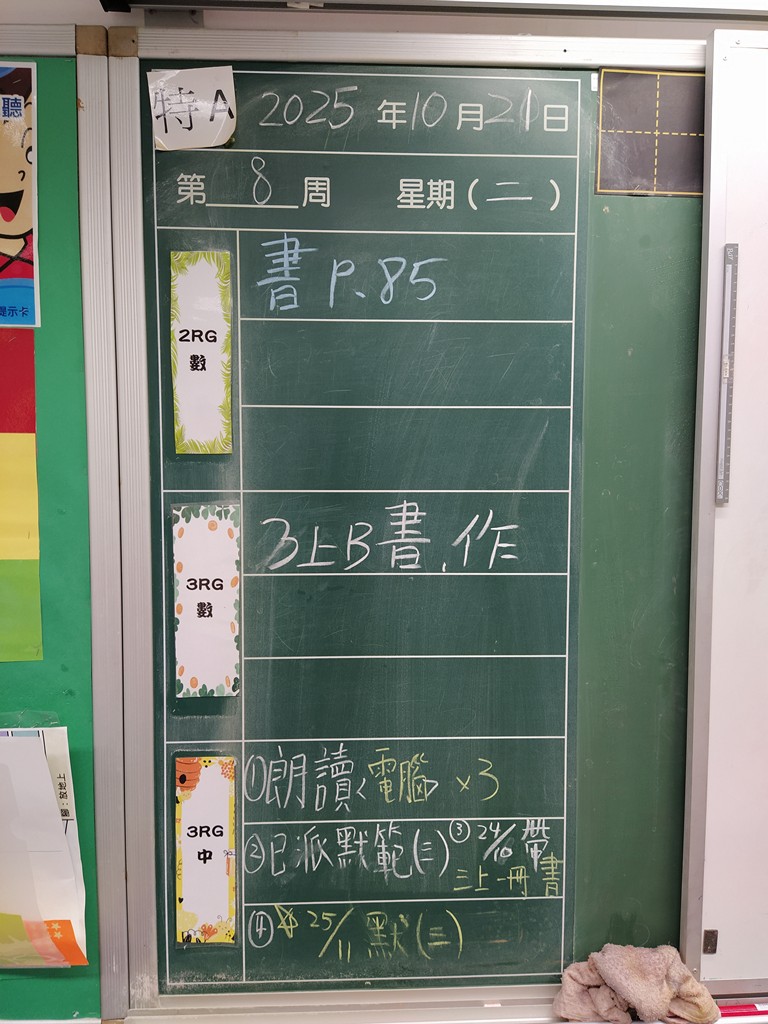 特A 2025年10月21日
第8周 星期(二)
2RG
數
書 P.85
3RG
數
3上B書.作
3RG
中
①朗讀<電腦> ×3
②已派默範(三) ③24/10 帶
三上一冊書
④☆25/11 默(三)
聽
提示卡